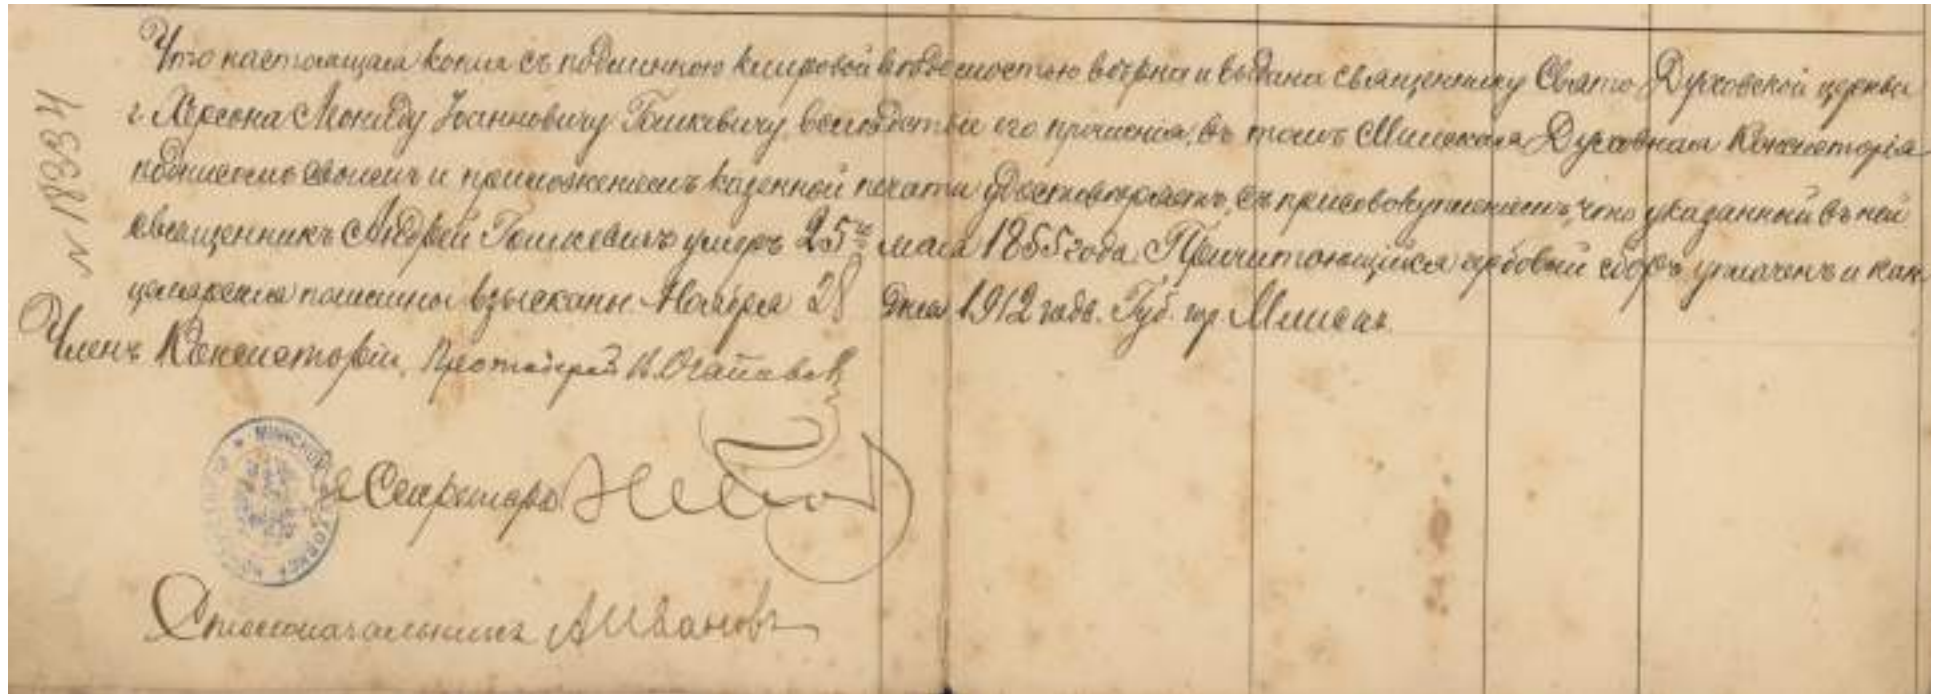 Что настоящая копия съ подлинною клировой вѣдомостью вѣрна и выдана священнику Свято-Духовской церкви
г. Херсона Іоанновичу Гошкевичу, вслѣдствіе его прошенія, въ томъ Минская Духовная Консисторія
подписью своею и приложеніемъ казенной печати удостовѣряетъ, съ присовокупленіемъ, что указанный въ ней
священникъ Андрей Гошкевичъ умеръ 25го мая 1855 года. Причитающійся гербовый сборъ уплаченъ и кан
целярскія пошлины взысканы. Ноября 28 дня 1912 года. Губ. гор. Минскъ.
Членъ Консисторіи, Протоіерей
Секретарь
Столоначальникъ А Ивановъ
N 18334
МИНСКОЙ